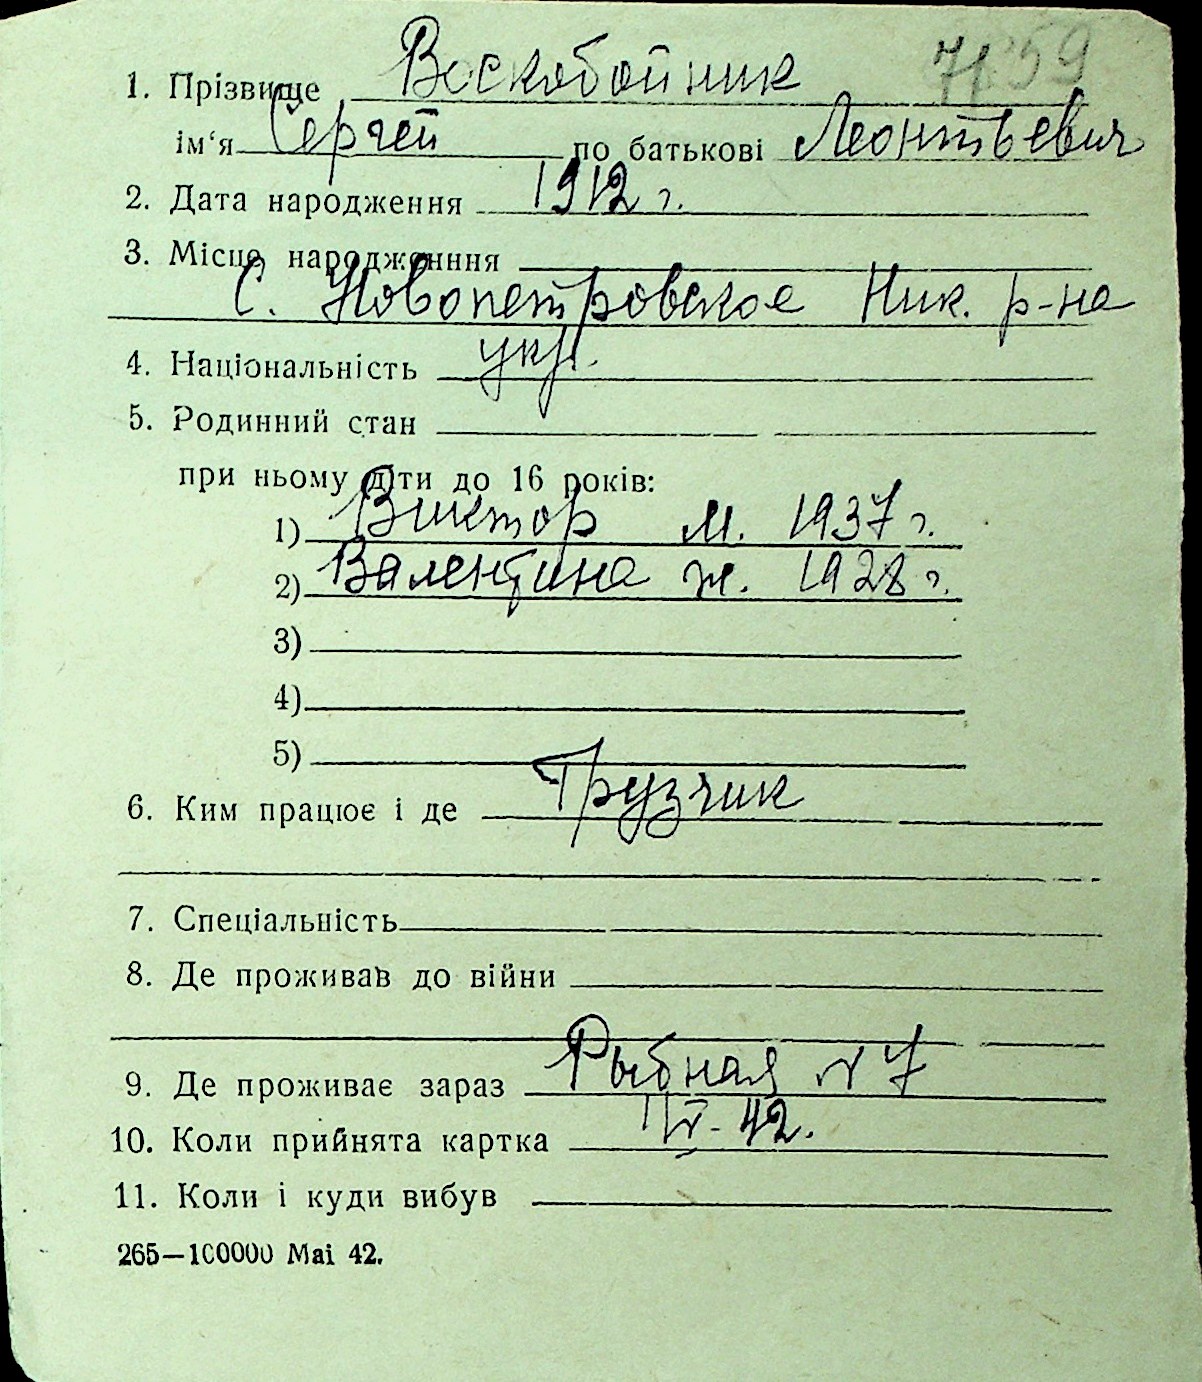 7159
1. Прізвище Воскобойник
ім‘я Сергей по батькові Леонтьевич
2. Дата народження 1912 г.
3. Місце народженння
С. Новопетровское Ник. р-на
4. Національність укр.
5. Родинний стан
при ньому діти до 16 років:
1) Виктор м. 1937 г.
2) Валентина ж. 1928 г.
3)
4)
5)
6. Ким працює і де Грузчик
7. Спеціальність
8. Де проживав до війни
9. Де проживає зараз Рыбная № 7
10. Коли прийнята картка IV-42.
11. Коли і куди вибув
265—100000 Mai 42.